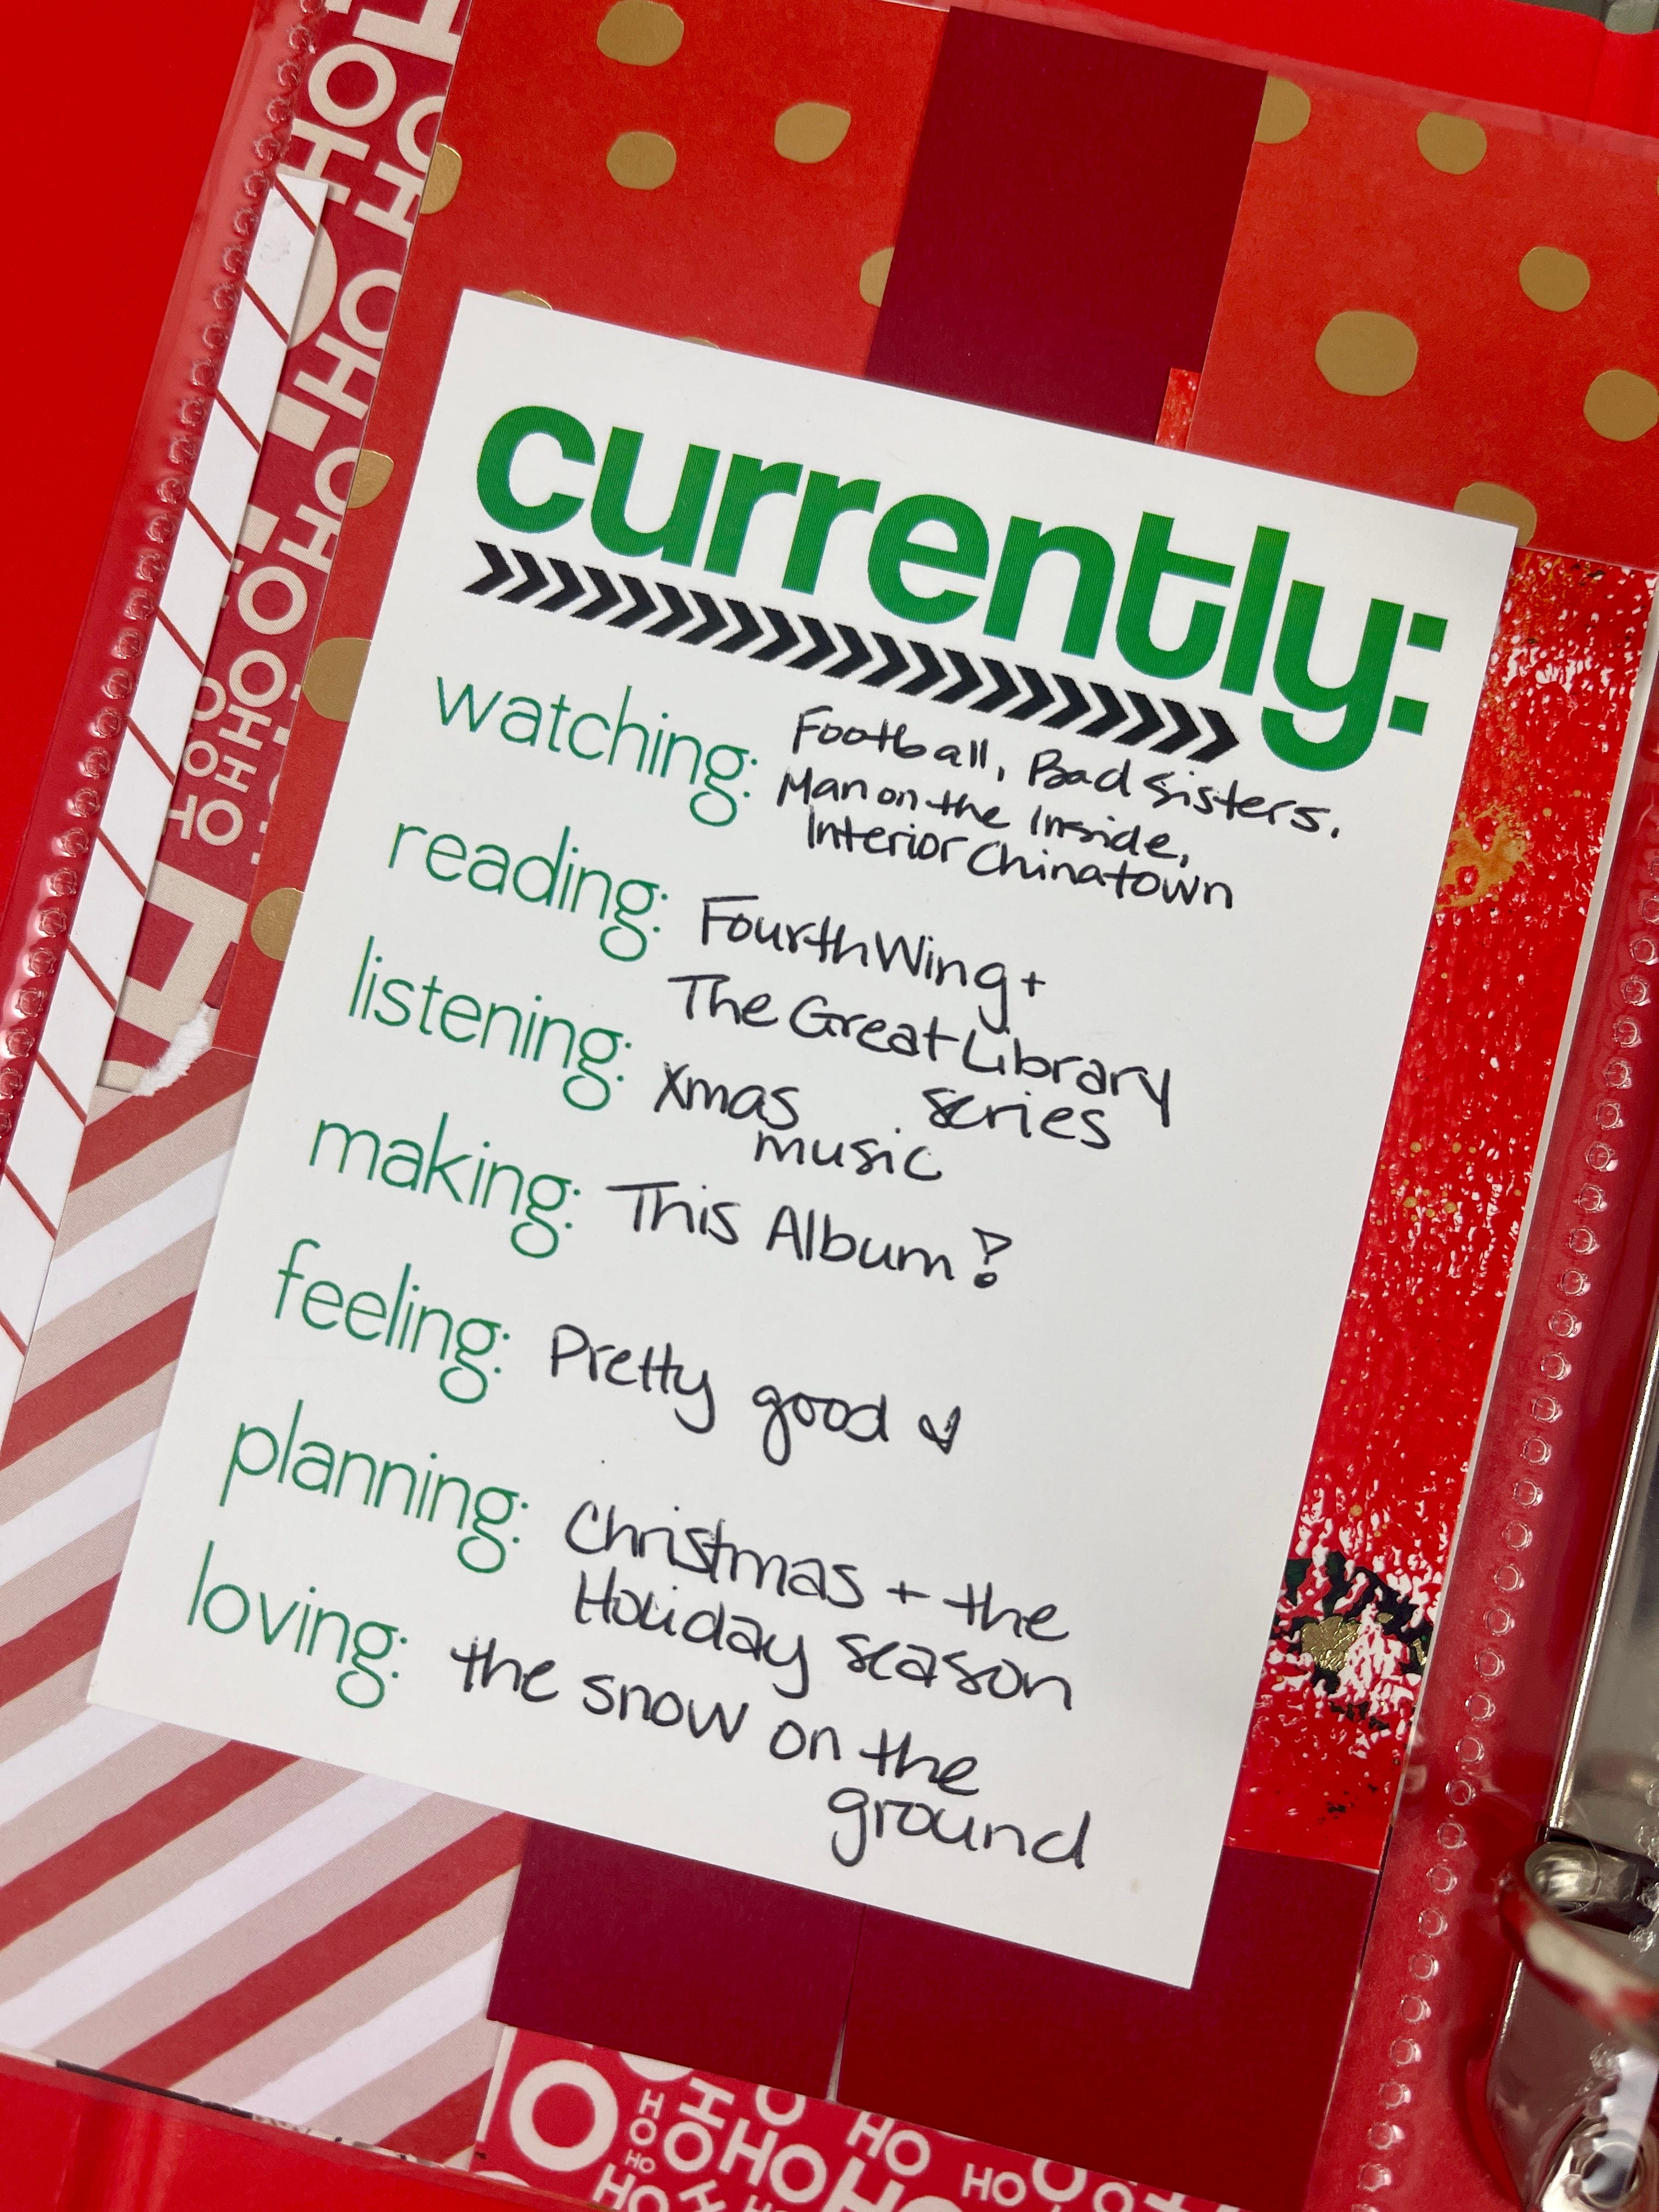 currently:
watching: Football, Bad Sisters.
Man on the Inside,
Interior Chinatown
reading: Fourth Wing +
The Great Library
series
listening: Xmas
music
making: This Album!
feeling: Pretty good
planning: Christmas + the
Holiday season
loving: the snow on the
ground
HO
HO
HO
HOHOHO
HO
HO
HO